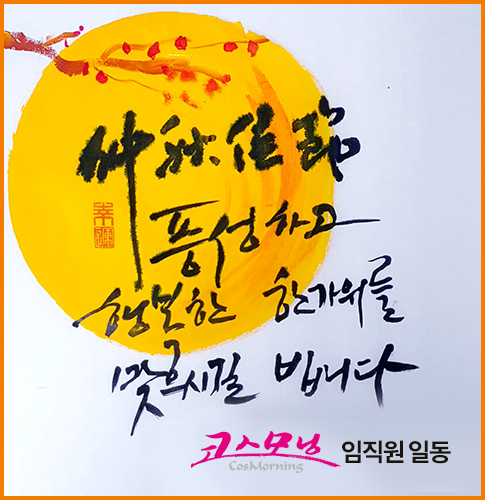 仲秋佳節
풍성하고
행복한 한가위를
맞으시길 빕니다
코스모닝 임직원 일동
CosMorning